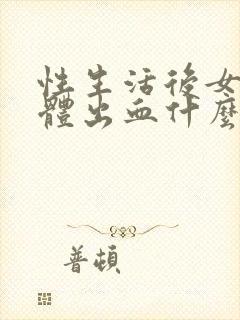 性生活後女
體出血什麼
普頓